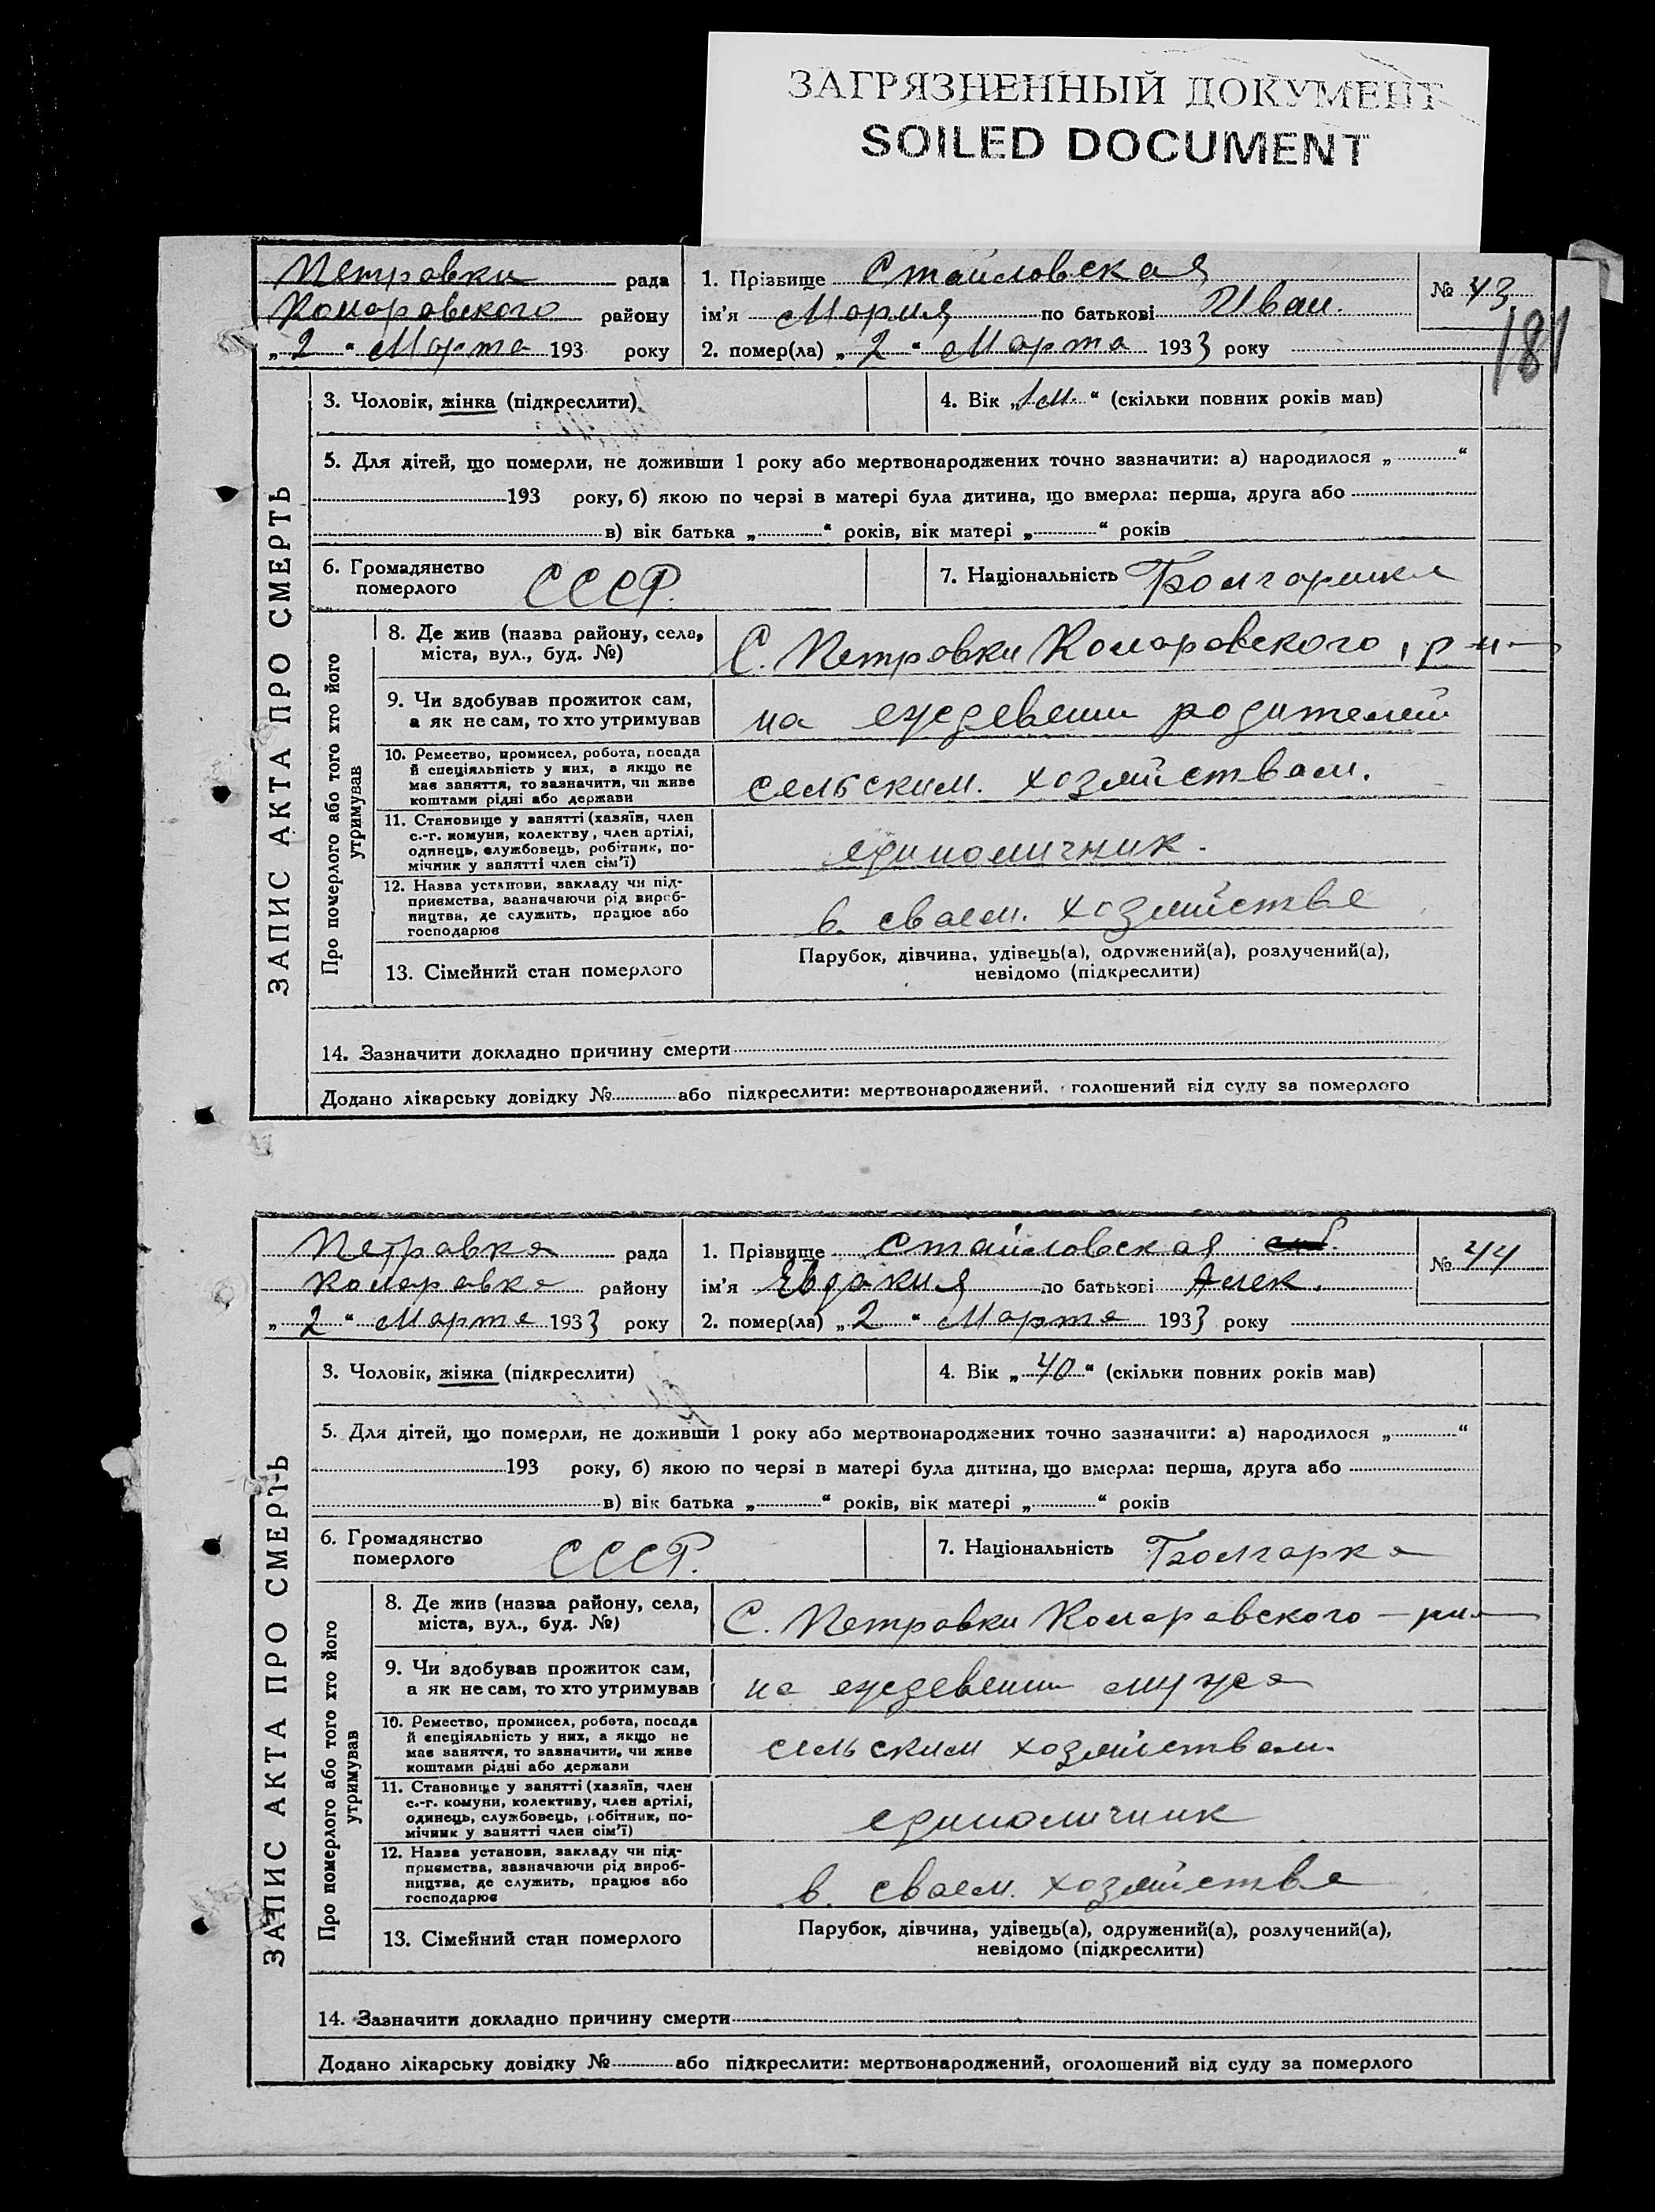 ЗАГРЯЗНЕННЫЙ ДОКУМЕНТ
SOILED DOCUMENT
Петровки рада
Комаровского району
„ 2 “ Марта 193 року
1. Прізвище Стаиловская
ім’я Мария по батькові Иван.
2. помер(ла) „ 2 “ Марта 1933 року
№ 43
181
3. Чоловік, жінка (підкреслити)
4. Вік „ 1 м. “ (скільки повних років мав)
5. Для дітей, що померли, не доживши 1 року або мертвонароджених точно зазначити: а) народилося „ “
193 року, б) якою по черзі в матері була дитина, що вмерла: перша, друга або
в) вік батька „ “ років, вік матері „ “ років
6. Громадянство
померлого
СССР.
7. Національність Болгарика
ЗАПИС АКТА ПРО СМЕРТЬ
Про померлого або того хто його
утримував
8. Де жив (назва району, села,
міста, вул., буд. №)
С. Петровки Комаровского, р-н
9. Чи здобував прожиток сам,
а як не сам, то хто утримував
на ежедевении родителей
10. Ремество, промисел, робота, посада
й спеціяльність у них, а якщо не
має заняття, то зазначити, чи живе
коштами рідні або держави
сельским. хозяйствам.
11. Становище у занятті (хазяїн, член
с.-г. комуни, колектву, член артілі,
одинець, службовець, робітник, по-
мічник у занятті член сім’ї)
единоличник.
12. Назва установи, закладу чи під-
приємства, зазначаючи рід вироб-
ництва, де служить, працює або
господарює
в. сваем. хозяйстве
13. Сімейний стан померлого
Парубок, дівчина, удівець(а), одружений(а), розлучений(а),
невідомо (підкреслити)
14. Зазначити докладно причину смерти
Додано лікарську довідку № або підкреслити: мертвонароджений, голошений від суду за померлого
Петровка рада
Комаровка району
„ 2 “ Марта 1933 року
1. Прізвище Стаиловская
ім’я Евдокия по батькові Алек.
2. помер(ла) „ 2 “ Марта 1933 року
№ 44
3. Чоловік, жінка (підкреслити)
4. Вік „ 40 “ (скільки повних років мав)
5. Для дітей, що померли, не доживши 1 року або мертвонароджених точно зазначити: а) народилося „ “
193 року, б) якою по черзі в матері була дитина, що вмерла: перша, друга або
в) вік батька „ “ років, вік матері „ “ років
6. Громадянство
померлого
СССР.
7. Національність Болгарка
ЗАПИС АКТА ПРО СМЕРТЬ
Про померлого або того хто його
утримував
8. Де жив (назва району, села,
міста, вул., буд. №)
С. Петровки Комаровского
9. Чи здобував прожиток сам,
а як не сам, то хто утримував
на ежедевении мужа
10. Ремество, промисел, робота, посада
й спеціяльність у них, а якщо не
має заняття, то зазначити, чи живе
коштами рідні або держави
сельским хозяйствам.
11. Становище у занятті (хазяїн, член
с.-г. комуни, колективу, член артілі,
одинець, службовець, робітник, по-
мічник у занятті член сім’ї)
единоличник
12. Назва установи, закладу чи під-
приємства, зазначаючи рід вироб-
ництва, де служить, працює або
господарює
в. сваем. хозяйстве
13. Сімейний стан померлого
Парубок, дівчина, удівець(а), одружений(а), розлучений(а),
невідомо (підкреслити)
14. Зазначити докладно причину смерти
Додано лікарську довідку № або підкреслити: мертвонароджений, оголошений від суду за померлого